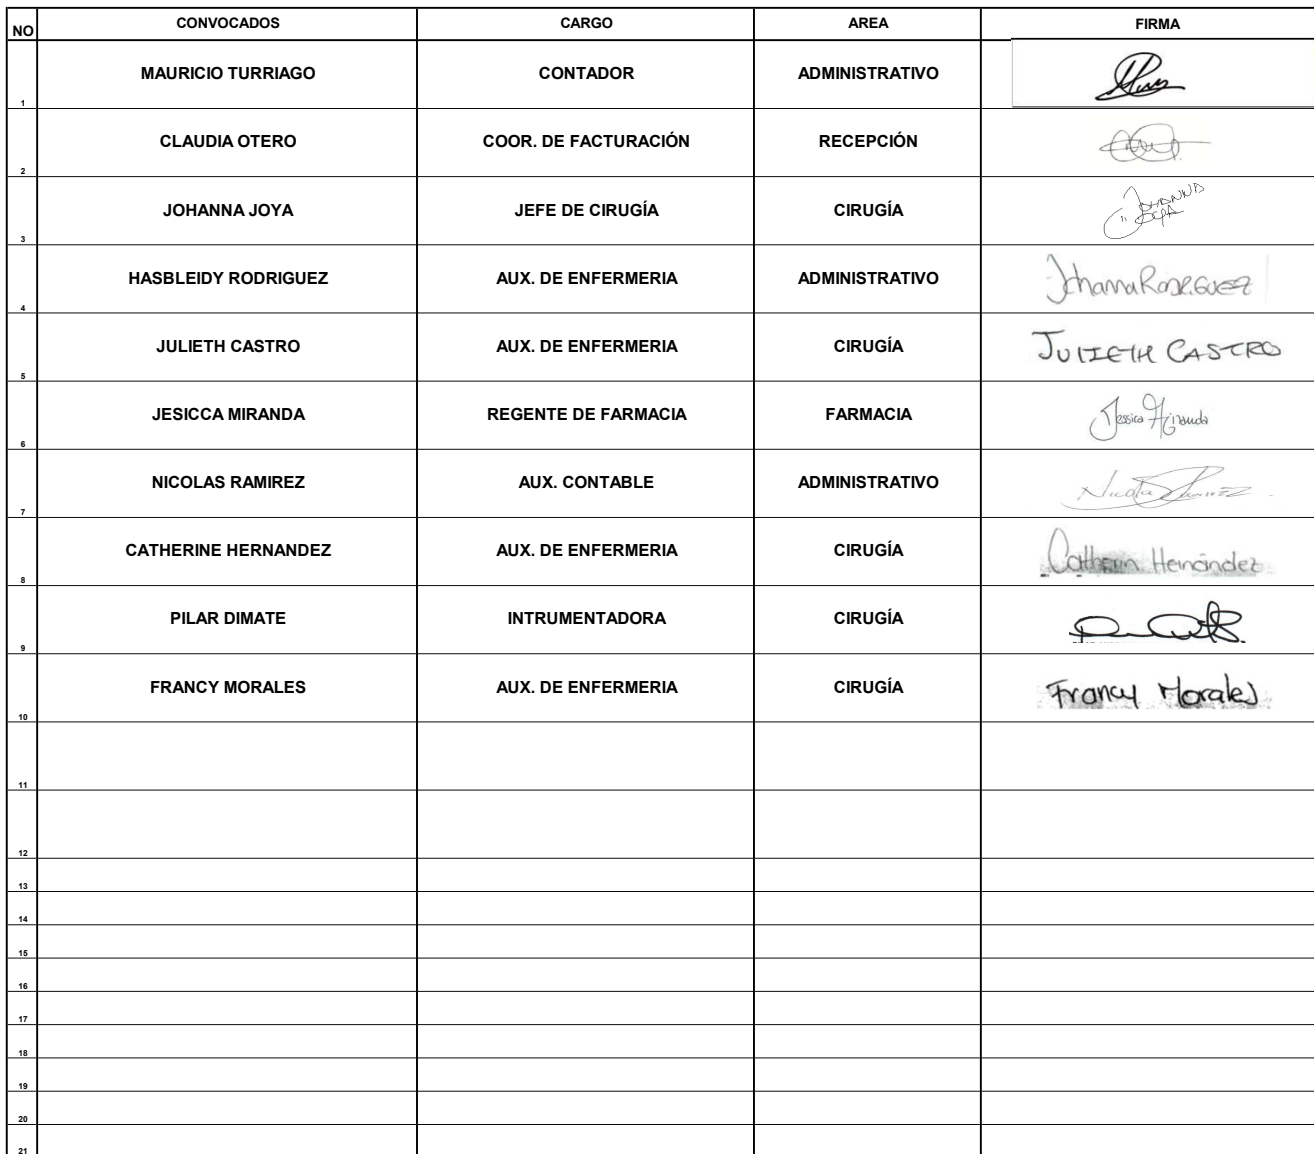 NO CONVOCADOS CARGO AREA FIRMA
1 MAURICIO TURRIAGO CONTADOR ADMINISTRATIVO
2 CLAUDIA OTERO COOR. DE FACTURACIÓN RECEPCIÓN
3 JOHANNA JOYA JEFE DE CIRUGÍA CIRUGÍA JOHANNA
4 HASBLEIDY RODRIGUEZ AUX. DE ENFERMERIA ADMINISTRATIVO Johanna RODRIGUEZ
5 JULIETH CASTRO AUX. DE ENFERMERIA CIRUGÍA JULIETH CASTRO
6 JESICCA MIRANDA REGENTE DE FARMACIA FARMACIA Jessica Miranda
7 NICOLAS RAMIREZ AUX. CONTABLE ADMINISTRATIVO
8 CATHERINE HERNANDEZ AUX. DE ENFERMERIA CIRUGÍA Catherin Hernández
9 PILAR DIMATE INTRUMENTADORA CIRUGÍA
10 FRANCY MORALES AUX. DE ENFERMERIA CIRUGÍA Francy Morales
11
12
13
14
15
16
17
18
19
20
21